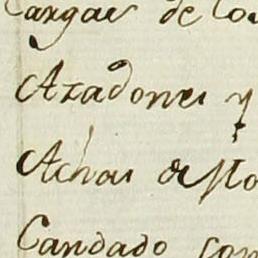 Cargas de
Azadones y
Achas
Candado con